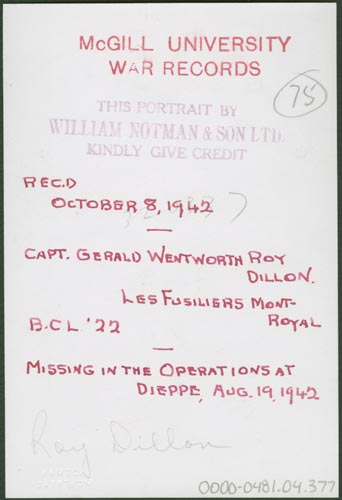 McGILL UNIVERSITY
WAR RECORDS
75
THIS PORTRAIT BY
WILLIAM NOTMAN & SON LTD.
KINDLY GIVE CREDIT
REC.D
OCTOBER 8, 1942
CAPT. GERALD WENTWORTH ROY
DILLON.
LES FUSILIERS MONT-
ROYAL
B.C.L. '22
MISSING IN THE OPERATIONS AT
DIEPPE, AUG. 19, 1942
Roy Dillon
0000-0481.04.377